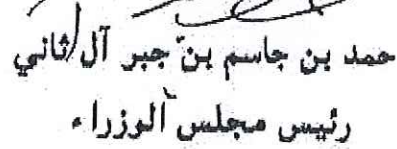 حمد بن جاسم بن جبر آل ثاني
رئيس مجلس الوزراء